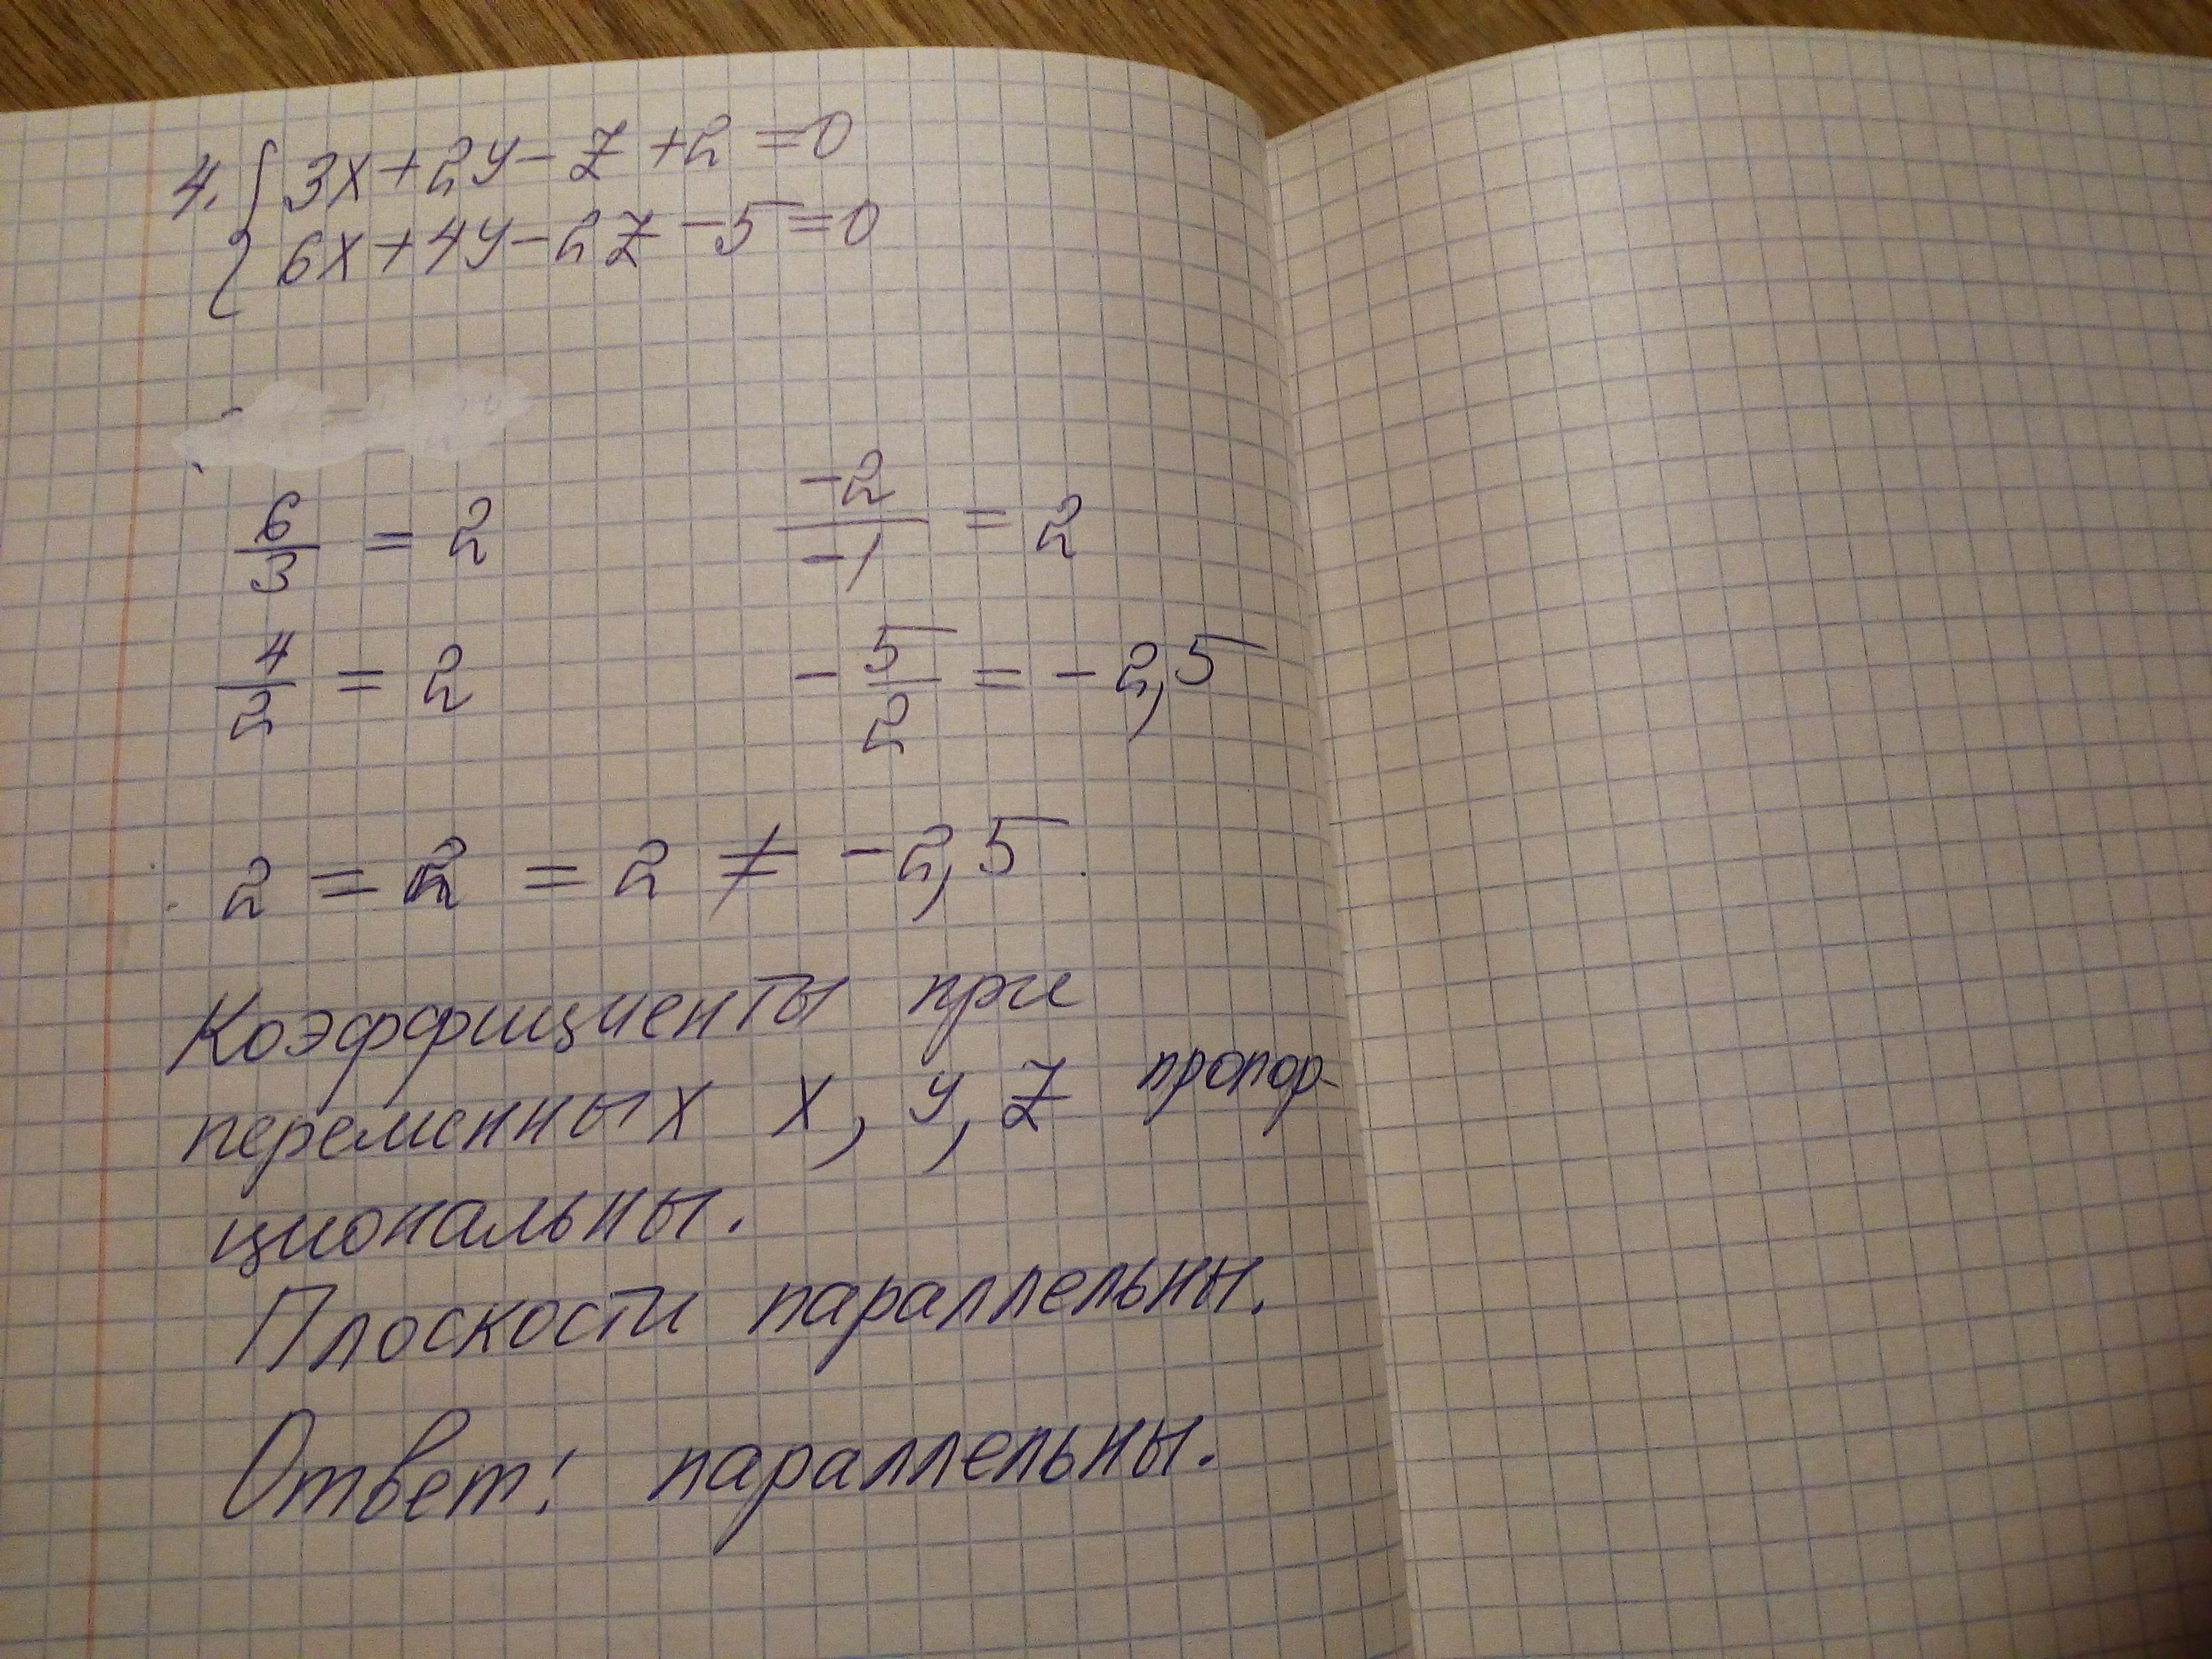 4. { 3x+2y-z+2=0
6x+4y-2z-5=0
6/3 = 2    -2/-1 = 2
4/2 = 2    -5/2 = -2,5
2 = 2 = 2 ≠ -2,5
Коэффициенты при
переменных x, y, z пропор-
циональны.
Плоскости параллельны.
Ответ: параллельны.